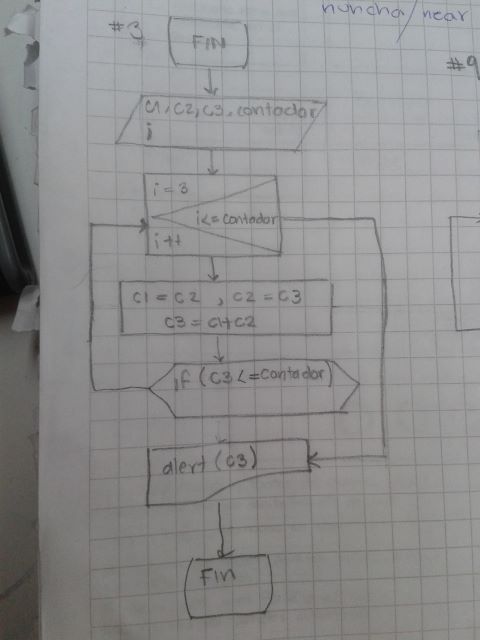 nuncha/near
#3
#9
FIN
c1, c2, c3, contador
i
i = 3
i<=contador
i++
c1 = c2 , c2 = c3
c3 = c1+c2
if (c3 <=contador)
alert (c3)
Fin